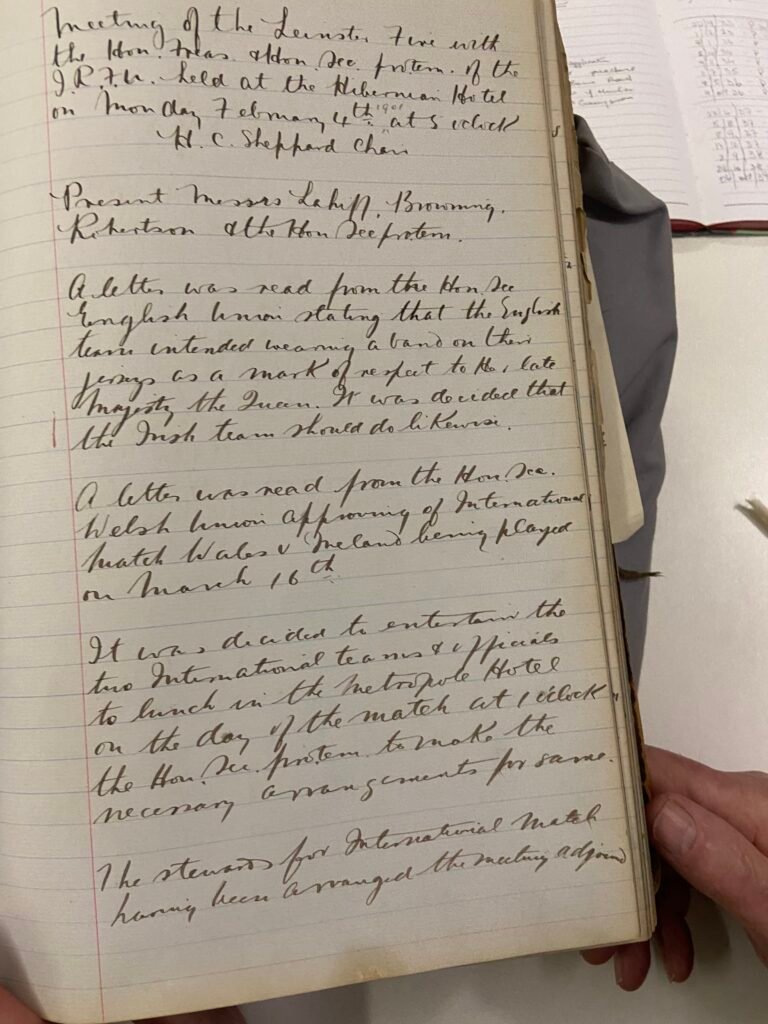 Meeting of the Leinster Five with
the Hon. Treas. & Hon. Sec. protem. of the
I.R.F.U. held at the Hibernian Hotel
on Monday February 4th 1901 at 5 o'clock
H. C. Sheppard Chair
Present Messrs Lahiff, Browning,
Robertson & the Hon Sec protem.
A letter was read from the Hon. Sec
English Union stating that the English
team intended wearing a band on their
jerseys as a mark of respect to Her late
Majesty the Queen. It was decided that
the Irish team should do likewise.
A letter was read from the Hon. Sec.
Welsh Union approving of International
match Wales v Ireland being played
on March 16th
It was decided to entertain the
two International teams & officials
to lunch in the Metropole Hotel
on the day of the match at 1 o'clock,
the Hon. Sec. protem. to make the
necessary arrangements for same.
The stewards for International Match
having been arranged the meeting adjourned